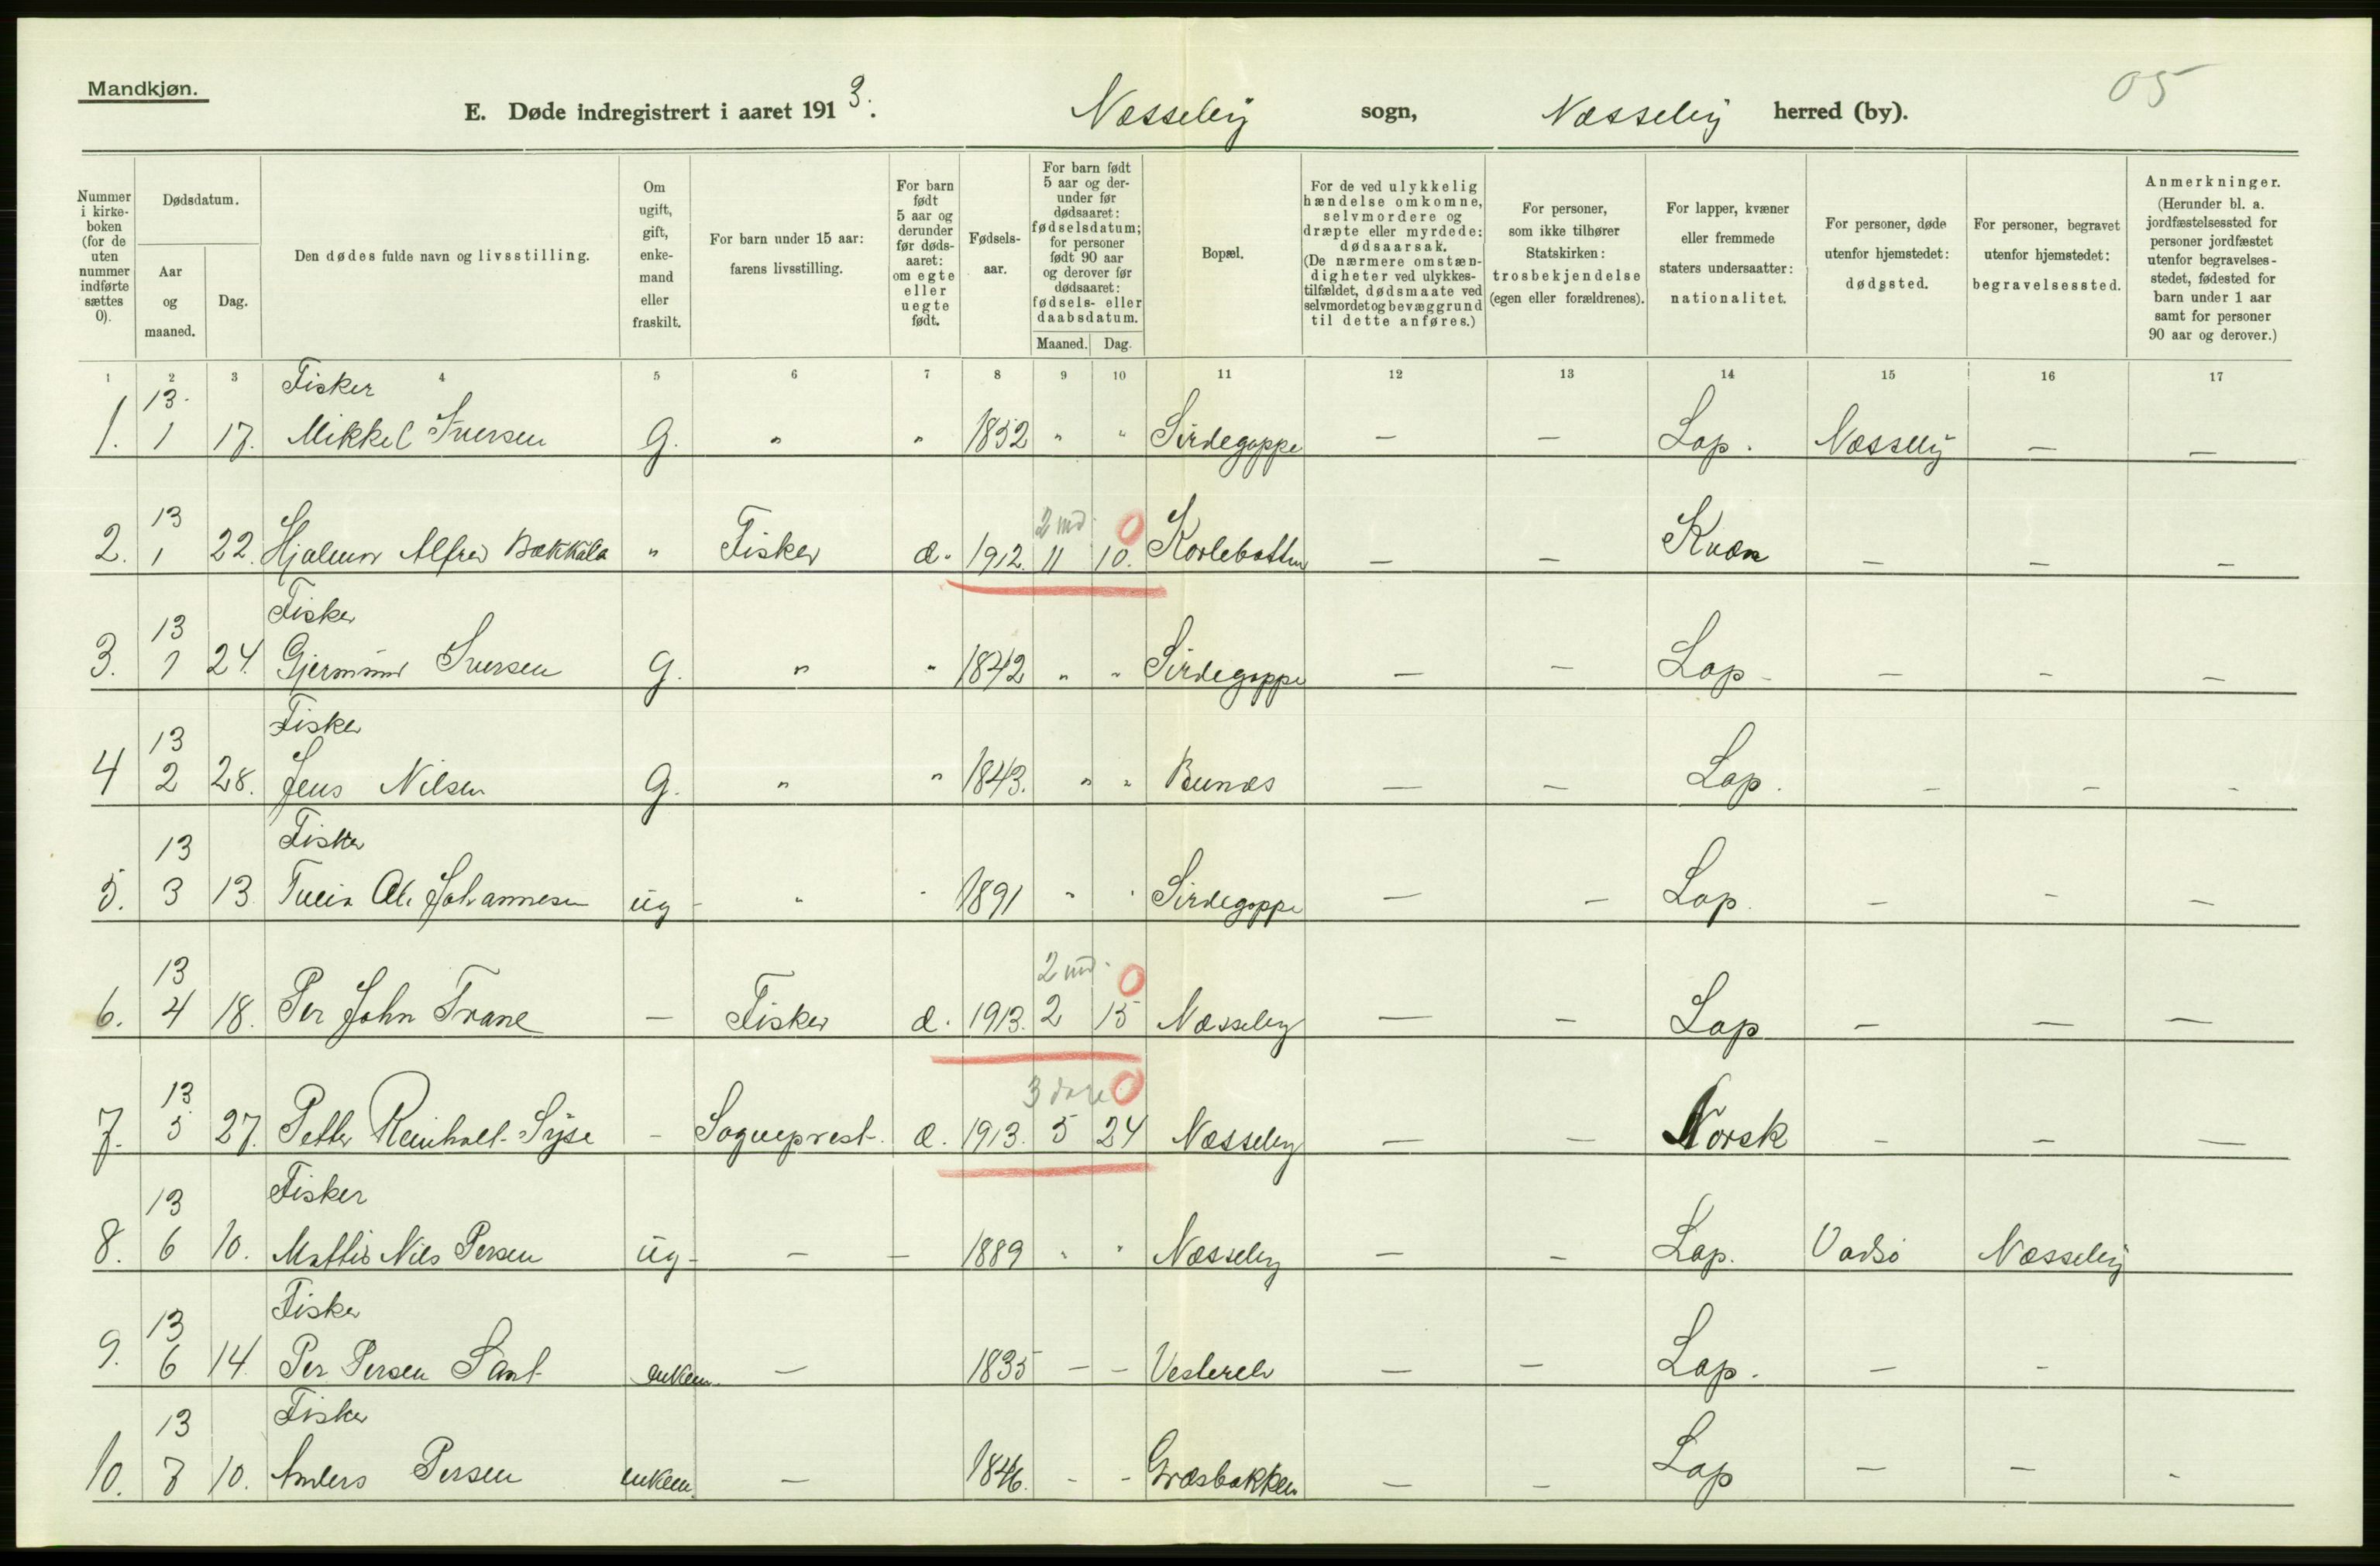 Mandkjøn.
05
E. Døde indregistrert i aaret 1913. Næsseby sogn, Næsseby herred (by).
Nummer i kirke-boken (for de uten nummer indførte sættes 0).
Dødsdatum.
Aar og maaned.
Dag.
Den dødes fulde navn og livsstilling.
Om ugift, gift, enke-mand eller fraskilt.
For barn under 15 aar: farens livsstilling.
For barn født 5 aar og derunder før døds-aaret: om egte eller uegte født.
Fødsels-aar.
For barn født 5 aar og der-under før dødsaaret: fødselsdatum; for personer født 90 aar og derover før dødsaaret: fødsels- eller daabsdatum.
Maaned. Dag.
Bopæl.
For de ved ulykkelig hændelse omkomne, selvmordere og dræpte eller myrdede: dødsaarsak. (De nærmere omstæn-digheter ved ulykkes-tilfældet, dødsmaate ved selvmordet og bevæggrund til dette anføres.)
For personer, som ikke tilhører Statskirken: trosbekjendelse (egen eller forældrenes).
For lapper, kvæner eller fremmede staters undersaatter: nationalitet.
For personer, døde utenfor hjemstedet: dødssted.
For personer, begravet utenfor hjemstedet: begravelsessted.
Anmerkninger. (Herunder bl. a. jordfæstelsessted for personer jordfæstet utenfor begravelses-stedet, fødested for barn under 1 aar samt for personer 90 aar og derover.)
1 2 3 4 5 6 7 8 9 10 11 12 13 14 15 16 17
13. Fisker
1. 1 17. Mikkel Iversen G. " " 1852 " " Sirdegoppe — — Lap. Næsseby — —
13 2 md. 0
2. 1 22. Hjalmar Alfred Bækkala " Fisker æ. 1912. 11 10. Karlebotten — — Kvæn — — —
13 Fisker
3. 1 24. Gjermund Iversen G. " " 1842 " " Sirdegoppe — — Lap — — —
13 Fisker
4 2 28. Jens Nilsen G. " " 1843. " " Bunæs — — Lap. — — —
13 Fisker
5. 3 13. Ole Johannesen ug — " " 1891 " " Sirdegoppe — — Lap. — — —
13 2 md. 0
6. 4 18. Per John Trane — Fisker æ. 1913. 2 15 Næsseby — — Lap — — —
13 3 dage 0
7. 5 27. Petter Reinholt Syse — Sogneprest æ. 1913. 5 24 Næsseby — — Norsk — — —
13 Fisker
8. 6 10. Mathis Nils Persen ug — — — 1889 " " Næsseby — — Lap. Vadsø Næsseby
13 Fisker
9. 6 14. Per Persen Sant enkem. — 1835 — — Vesterelv — — Lap. — —
13 Fisker
10. 7 10. Anders Persen enkem. — 1846. — — Græsbakken — — Lap — — —